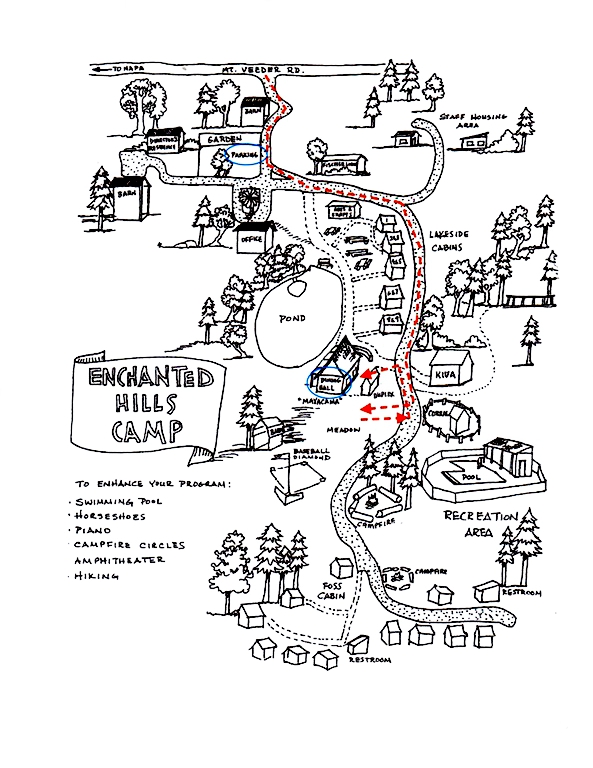 TO NAPA
MT. VEEDER RD.
BARN
STAFF HOUSING
AREA
GARDEN
PARKING
BARN
OFFICE
LAKESIDE
CABINS
POND
KIVA
DINING
HALL
DUPLEX
"MAYACAMA"
CORRAL
MEADOW
ENCHANTED
HILLS
CAMP
BARN
BASEBALL
DIAMOND
POOL
TO ENHANCE YOUR PROGRAM:
· SWIMMING POOL
· HORSESHOES
· PIANO
· CAMPFIRE CIRCLES
AMPHITHEATER
· HIKING
CAMPFIRE
RECREATION
AREA
FOSS
CABIN
CAMPFIRE
RESTROOM
RESTROOM